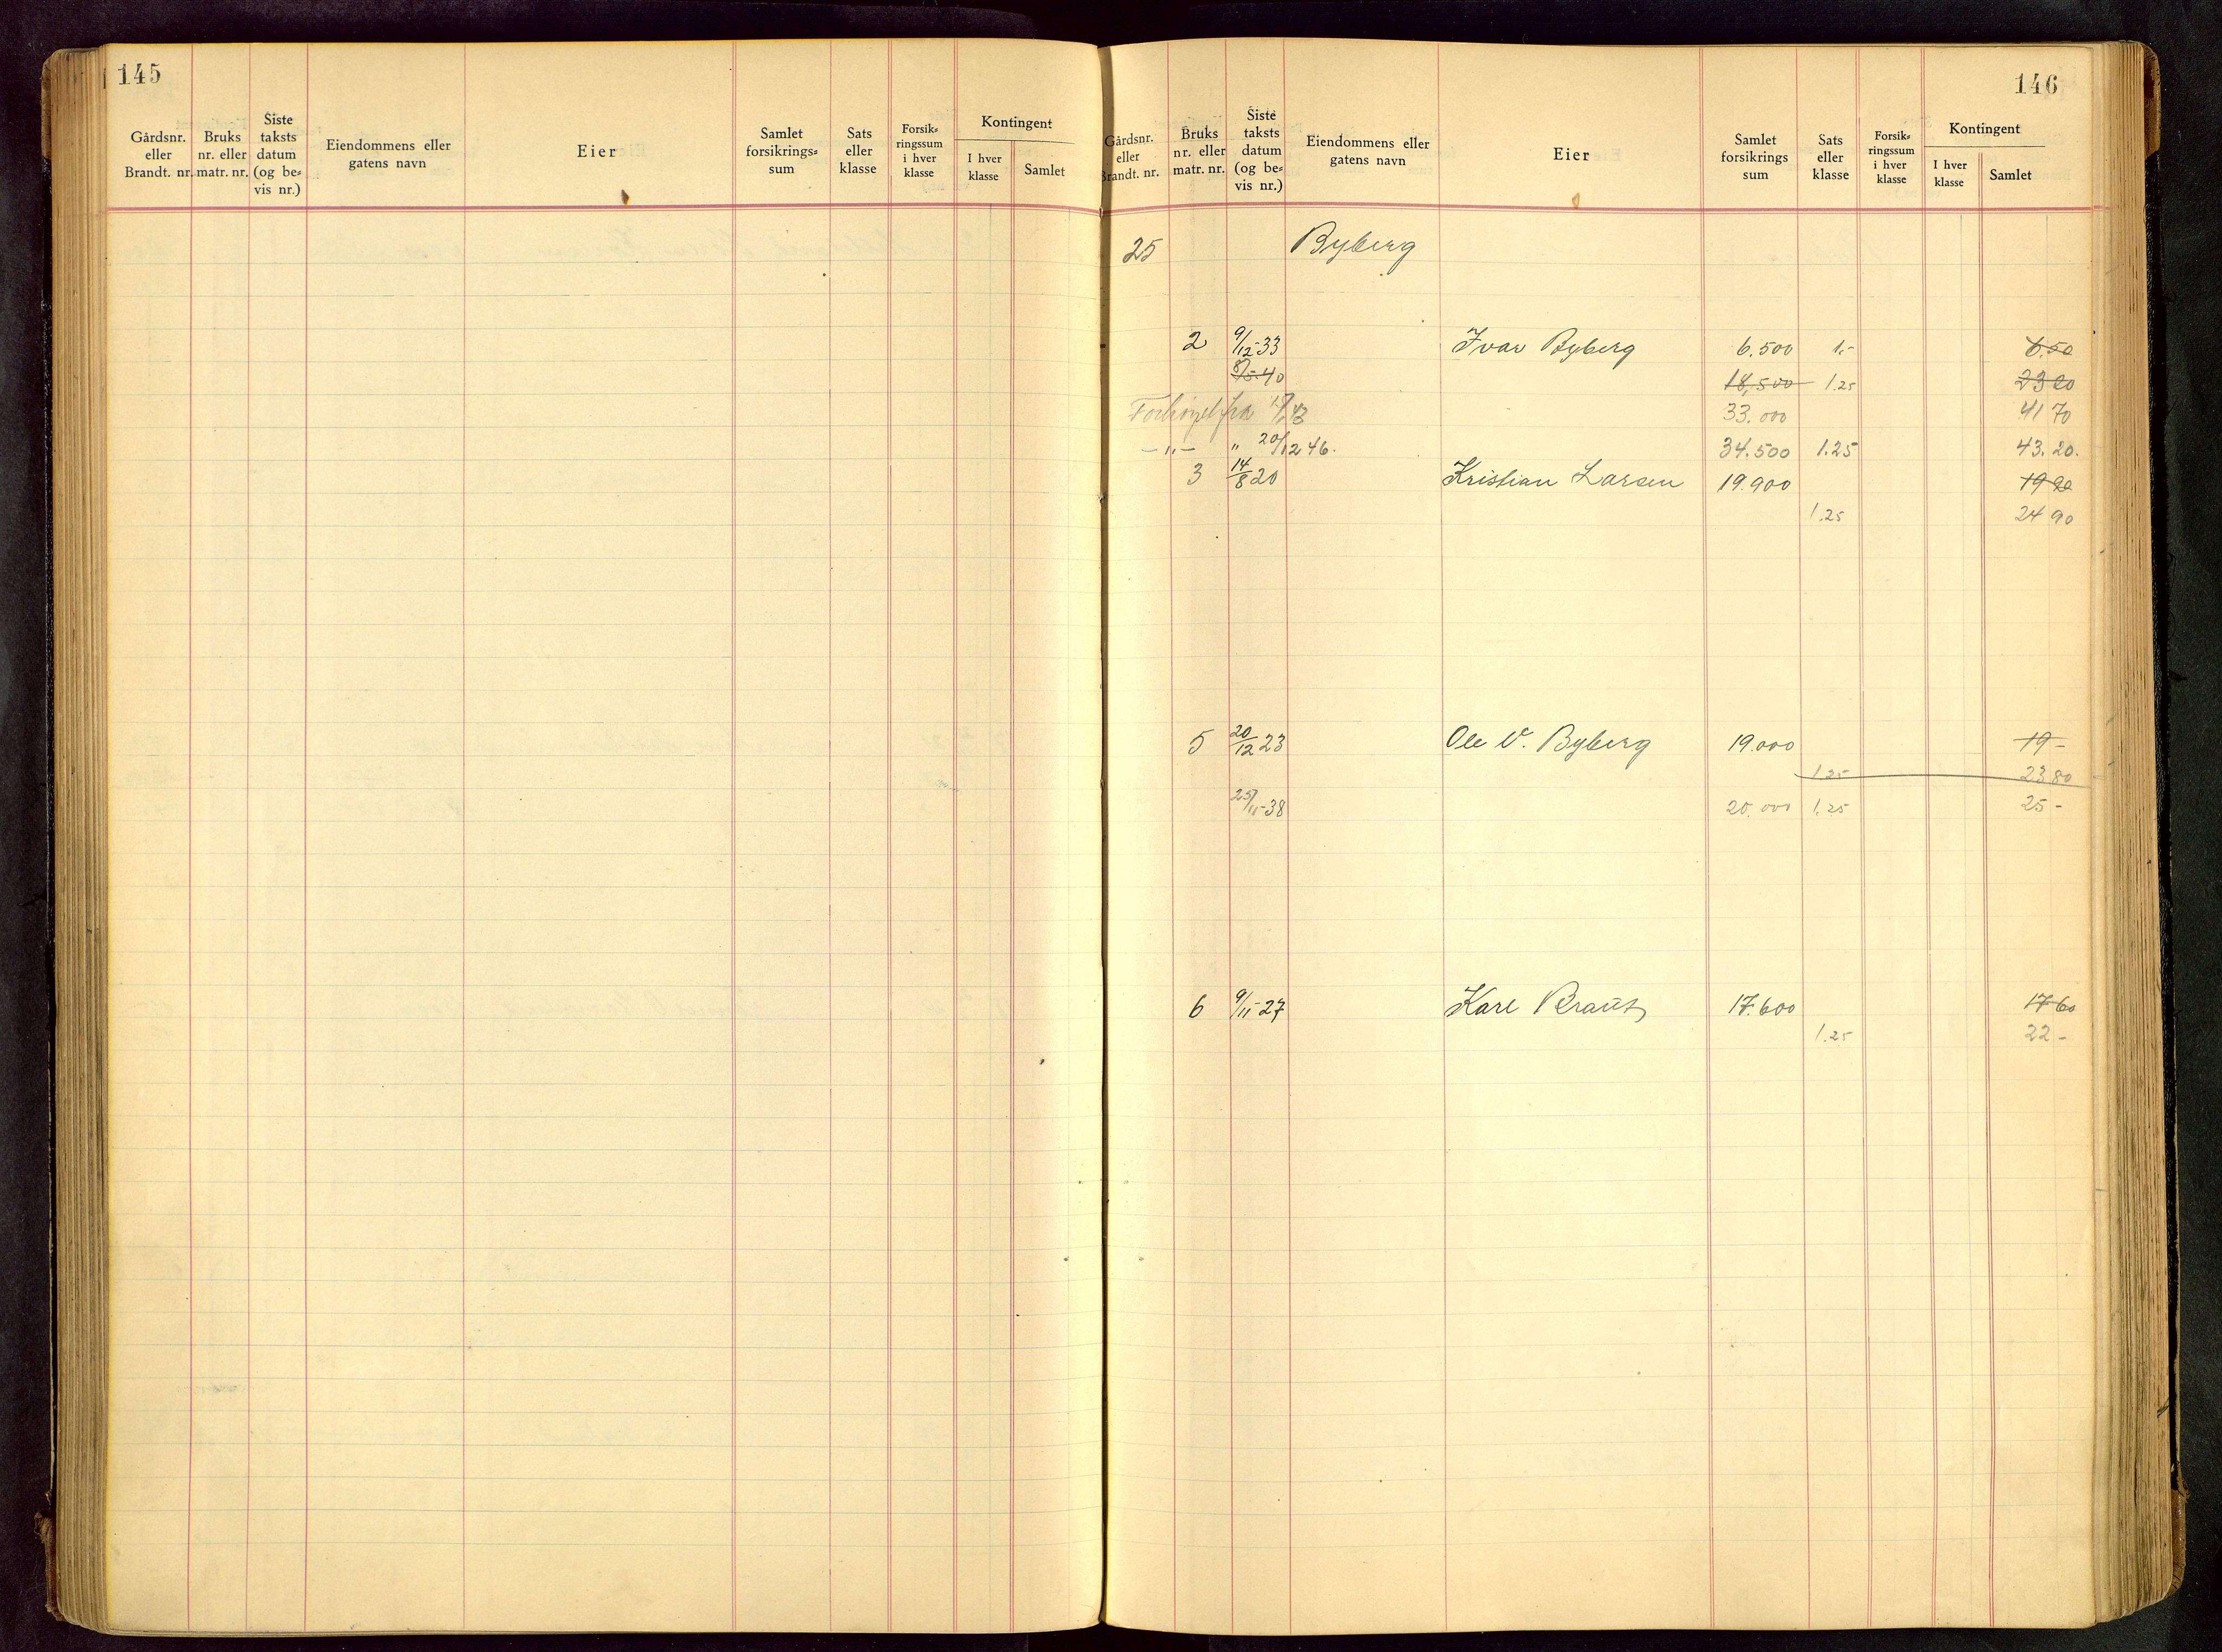 145
Gårdsnr. eller Brandt. nr. Bruks nr. eller matr. nr. Siste taksts datum (og be= vis nr.) Eiendommens eller gatens navn Eier Samlet forsikrings= sum Sats eller klasse Forsik= ringssum i hver klasse Kontingent I hver klasse Samlet
146
Gårdsnr. eller Brandt. nr. Bruks nr. eller matr. nr. Siste taksts datum (og be= vis nr.) Eiendommens eller gatens navn Eier Samlet forsikrings sum Sats eller klasse Forsik= ringssum i hver klasse Kontingent I hver klasse Samlet
25 Byberg
2 9/12-33 Ivar Byberg 6.500 1.- 6.50
8/5-40 18,500 1.25 23 20
fra 33.000 41 70
-"- " 20/12 46. 34.500 1.25 43.20.
3 14/8 20 Kristian Larsen 19.900 19 90
1.25 24 90
5 20/12 23 Ole V. Byberg 19.000 19-
1.25 23 80
25/11-38 20.000 1.25 25-
6 9/11-27 Karl Braut 17.600 17 60
1.25 22-